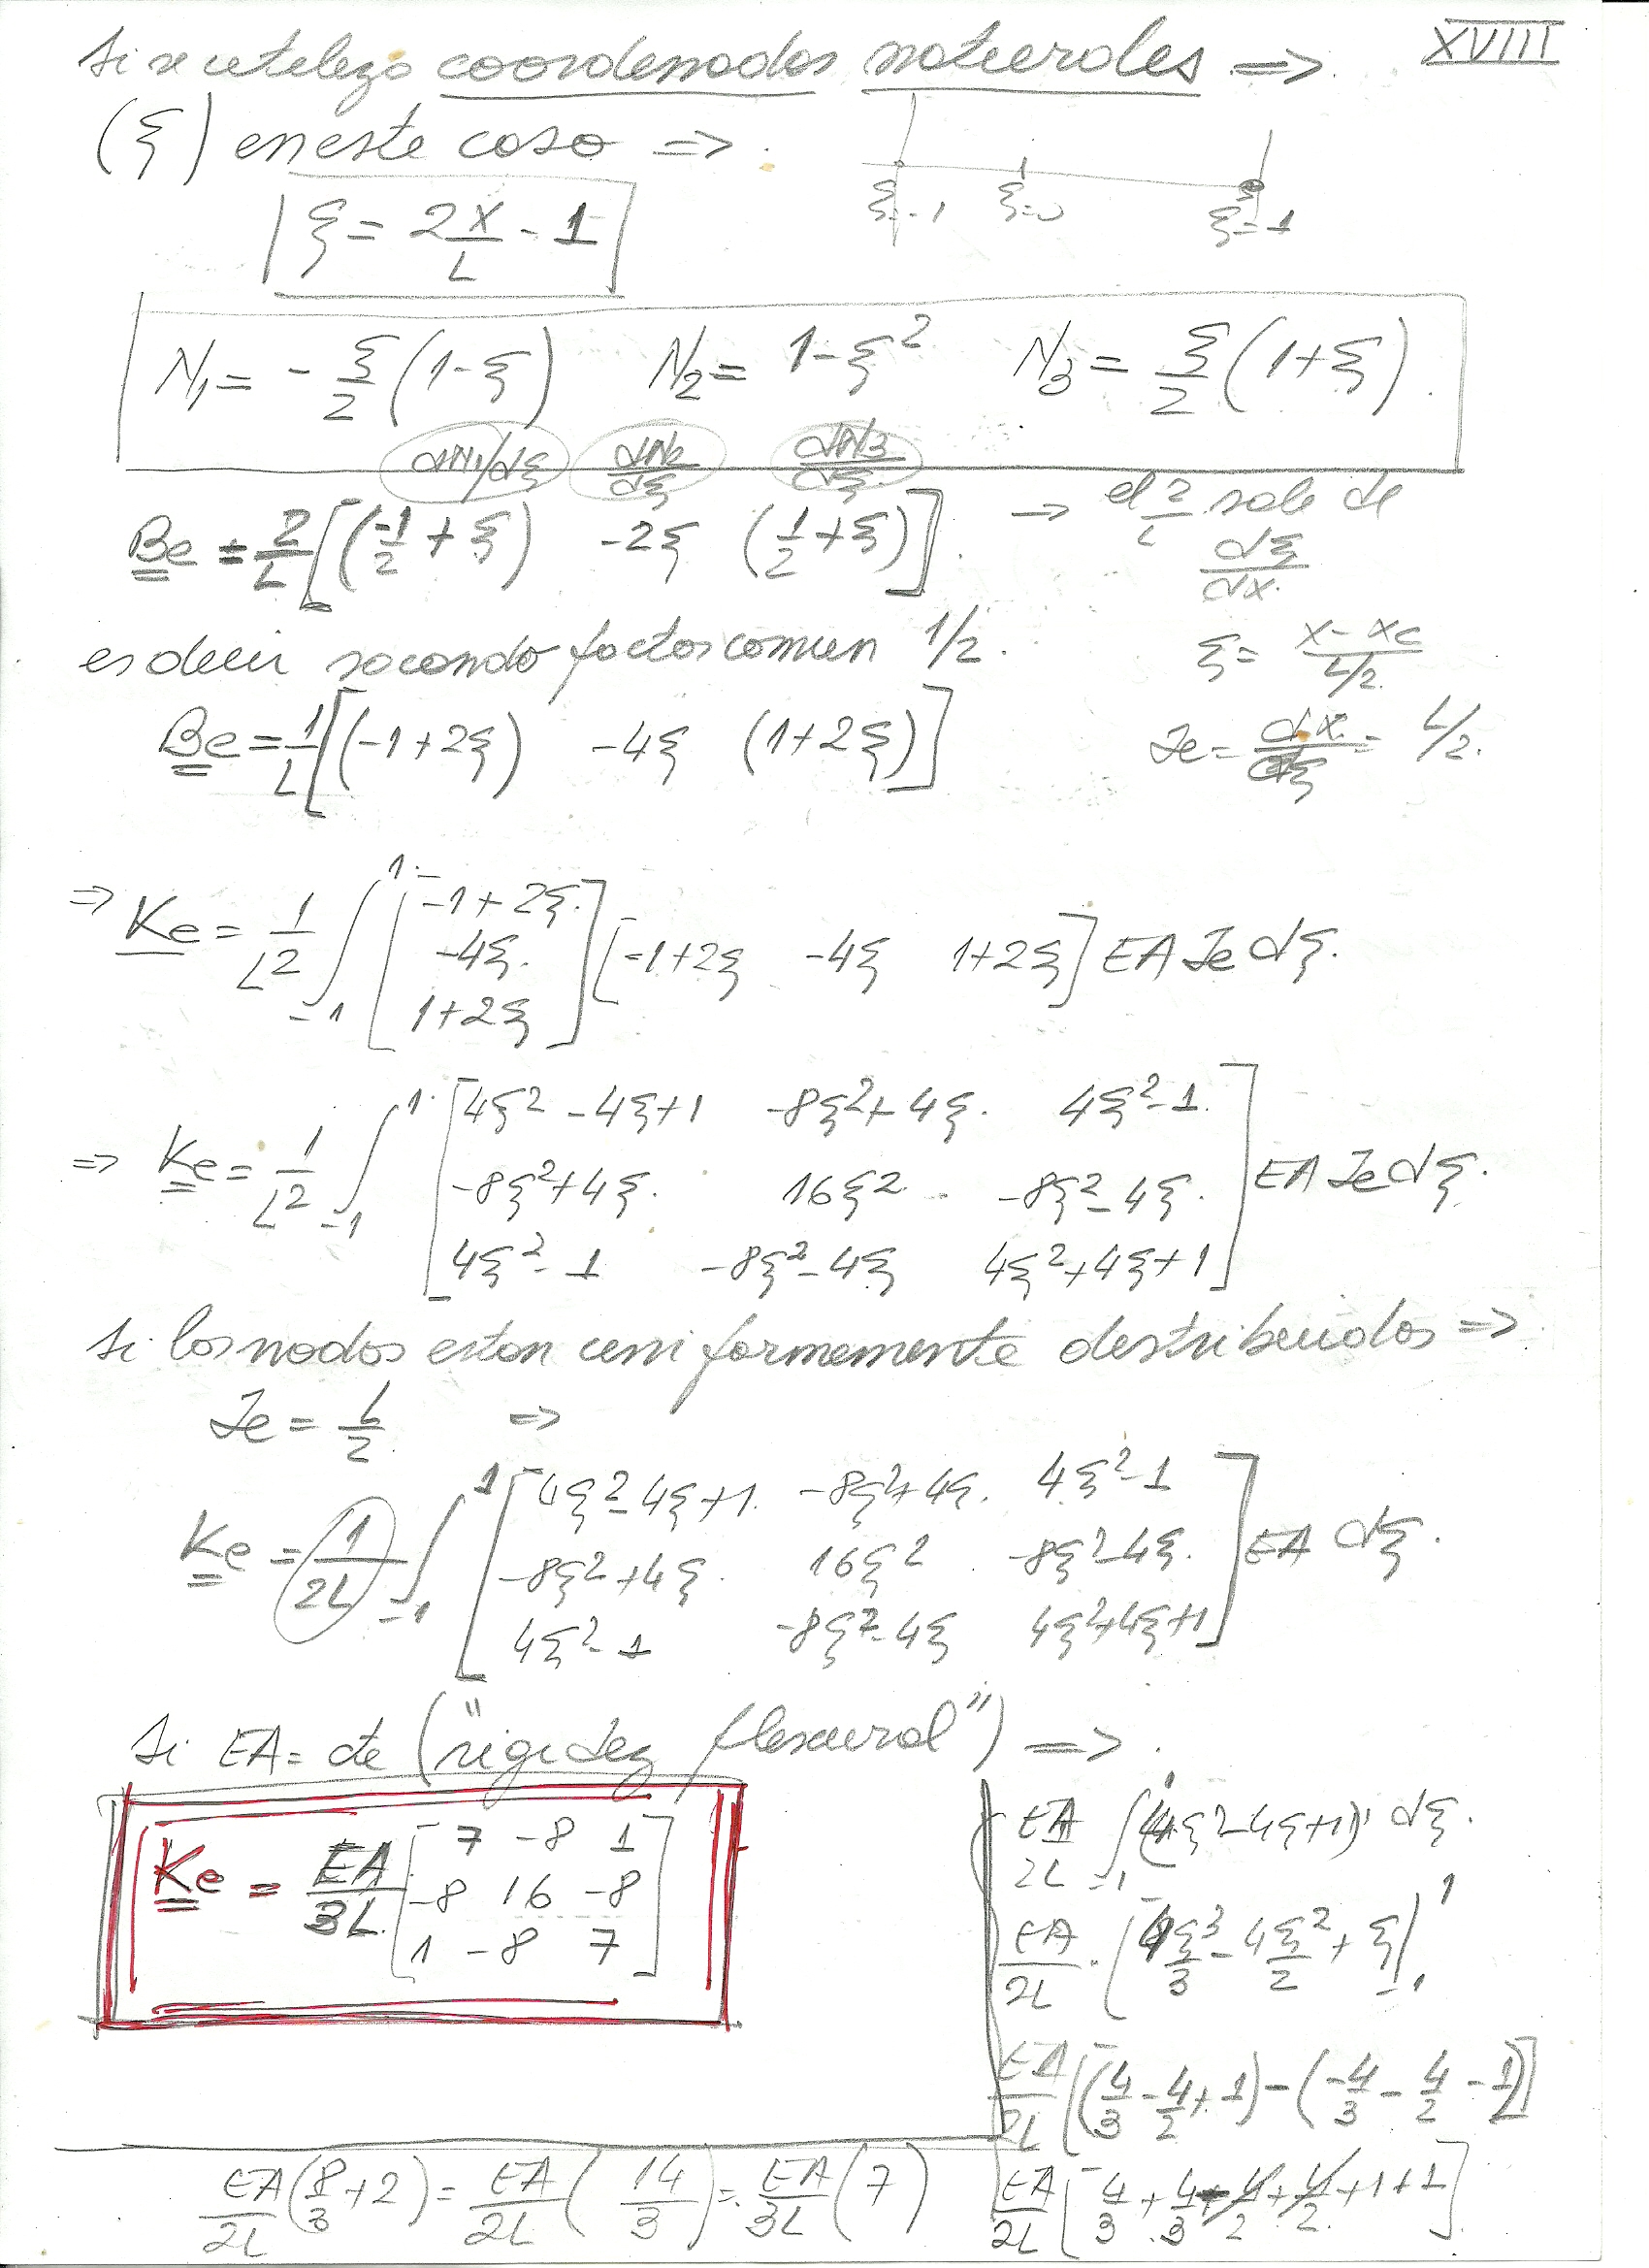 Si se utiliza coordenadas naturales => XVIII
(ξ) en este caso =>
ξ=-1 ξ=0 ξ=1
ξ = 2x/L - 1
N1 = -ξ/2 (1-ξ) N2 = 1-ξ² N3 = ξ/2 (1+ξ)
dN1/dξ dN2/dξ dN3/dξ
Be = 2/L [(-1/2 + ξ) -2ξ (1/2 + ξ)] => el 2/L sale de dξ/dx
es decir sacando factor comun 1/2. ξ = (x - xc)/(L/2)
Be = 1/L [(-1+2ξ) -4ξ (1+2ξ)] Je = dx/dξ = L/2.
=> Ke = 1/L² ∫₋₁¹ [-1+2ξ
-4ξ
1+2ξ] [-1+2ξ -4ξ 1+2ξ] EA Je dξ.
=> Ke = 1/L² ∫₋₁¹ [4ξ²-4ξ+1 -8ξ²+4ξ 4ξ²-1
-8ξ²+4ξ 16ξ² -8ξ²-4ξ
4ξ²-1 -8ξ²-4ξ 4ξ²+4ξ+1] EA Je dξ.
Si los nodos estan uniformemente distribuidos =>
Je = L/2 =>
Ke = 1/2L ∫₋₁¹ [4ξ²-4ξ+1 -8ξ²+4ξ 4ξ²-1
-8ξ²+4ξ 16ξ² -8ξ²-4ξ
4ξ²-1 -8ξ²-4ξ 4ξ²+4ξ+1] EA dξ.
Si EA = cte ("rigidez flexural") =>
Ke = EA/3L [7 -8 1
-8 16 -8
1 -8 7]
EA/2L ∫₋₁¹ (4ξ²-4ξ+1) dξ.
EA/2L [4ξ³/3 - 4ξ²/2 + ξ]₋₁¹
EA/2L [(4/3 - 4/2 + 1) - (-4/3 - 4/2 - 1)]
EA/2L [4/3 + 4/3 - 4/2 + 4/2 + 1 + 1]
EA/2L (8/3 + 2) = EA/2L (14/3) = EA/3L (7)